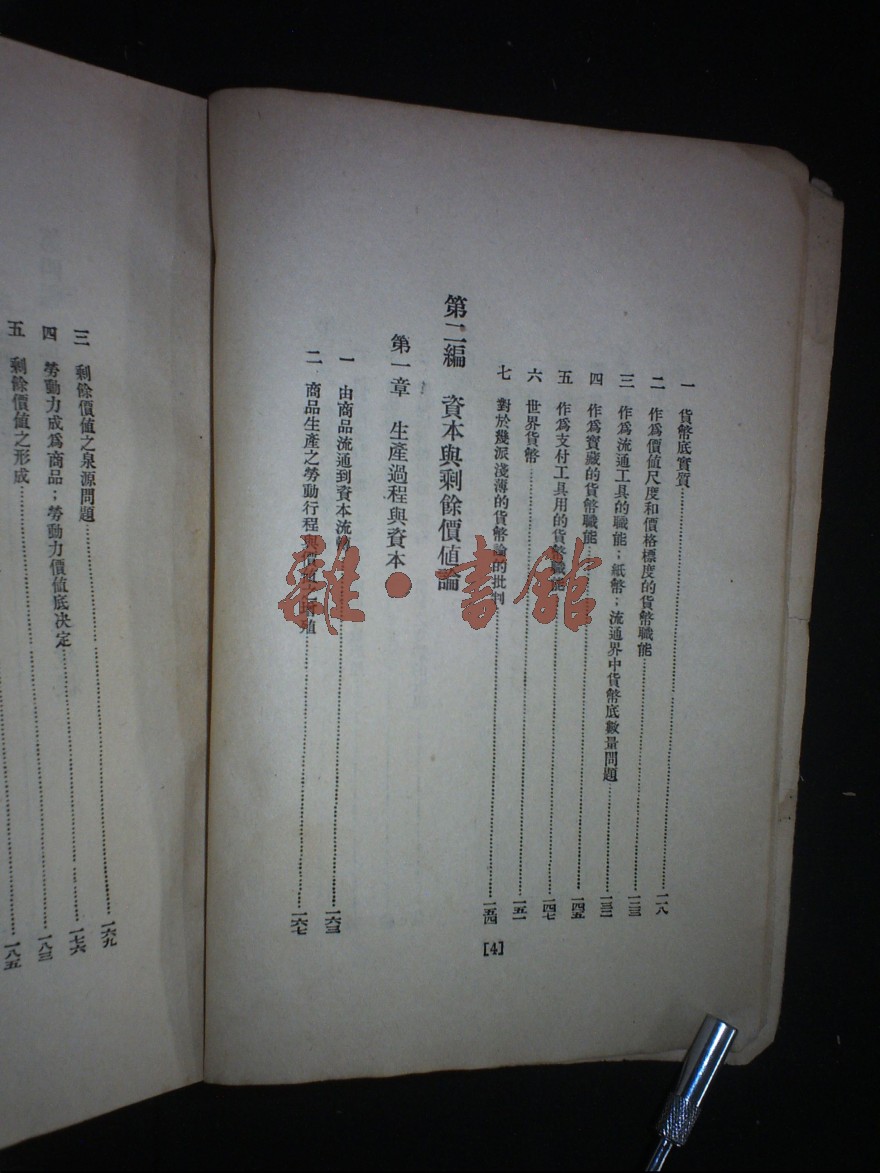 一 貨幣底實質……一一八
二 作爲價值尺度和價格標度的貨幣職能……一二三
三 作爲流通工具的職能；紙幣；流通界中貨幣底數量問題……一三二
四 作爲寶藏的貨幣職能……一四五
五 作爲支付工具用的貨幣職能……一四七
六 世界貨幣……一五一
七 對於幾派淺薄的貨幣論的批判……一五四
第二編 資本與剩餘價值論
第一章 生產過程與資本
一 由商品流通到資本流通……一六三
二 商品生產之勞動行程與價值殖……一六七
[4]
三 剩餘價值之泉源問題……一六九
四 勞動力成爲商品；勞動力價值底决定……一七六
五 剩餘價值之形成……一八三
一八五
雜·書館